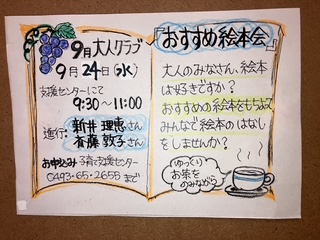 9月大人クラブ
9月24日(水)
支援センターにて
9:30〜11:00
進行:新井 理恵さん
斉藤 敦子さん
お申込み 子育て支援センター
0493-65-2655まで
『おすすめ絵本会』
大人のみなさん、絵本
は好きですか?
おすすめの絵本をもちよって
みんなで絵本のはなし
をしませんか?
ゆっくり
お茶を
のみながら